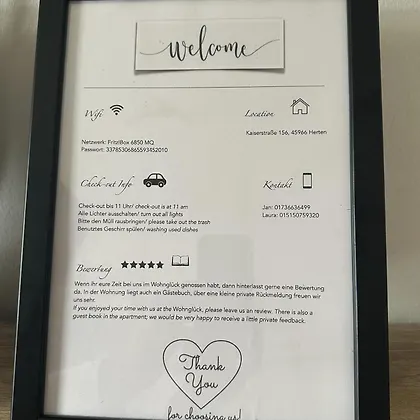 welcome
Wifi
Location
Kaiserstraße 156, 45966 Herten
Netzwerk: Fritz!Box 6850 MQ
Passwort: 33785306865593452010
Check-out Info
Kontakt
Check-out bis 11 Uhr/ check-out is at 11 am
Alle Lichter ausschalten/ turn out all lights
Bitte den Müll rausbringen/ please take out the trash
Benutztes Geschirr spülen/ washing used dishes
Jan: 01736636499
Laura: 015150759320
Bewertung
Wenn ihr eure Zeit bei uns im Wohnglück genossen habt, dann hinterlasst gerne eine Bewertung
da. In der Wohnung liegt auch ein Gästebuch, über eine kleine private Rückmeldung freuen wir
uns sehr.
If you enjoyed your time with us at the Wohnglück, please leave us an review. There is also a
guest book in the apartment; we would be very happy to receive a little private feedback.
Thank
You
for choosing us!